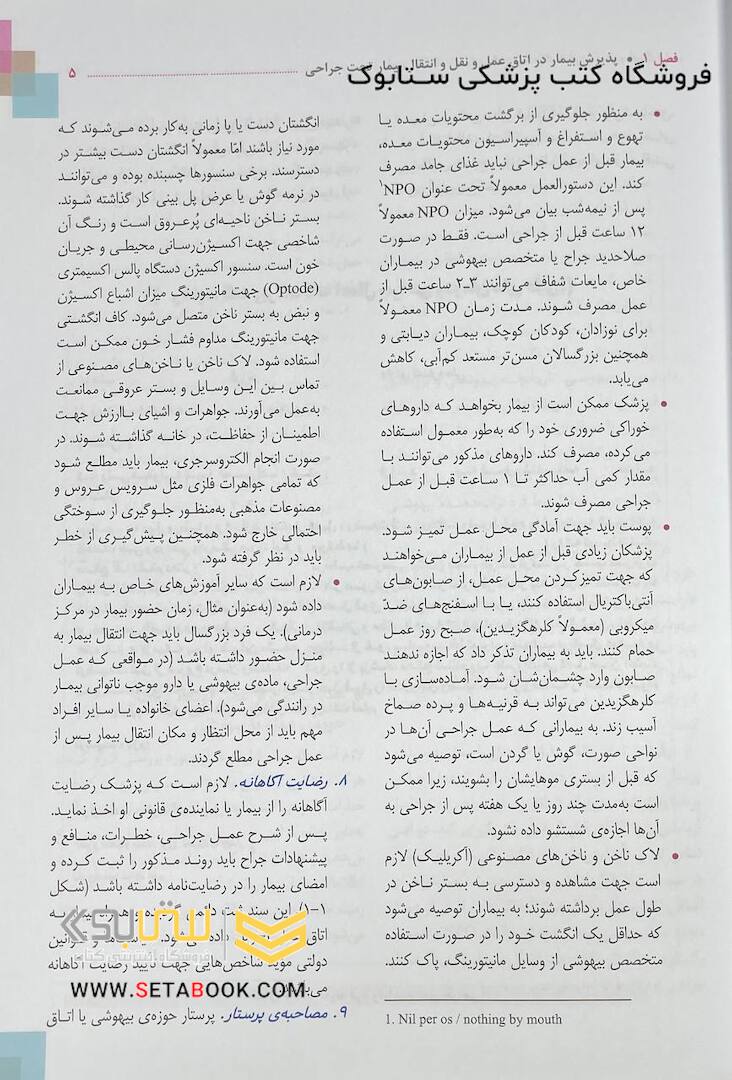 فصل ۱ • پذیرش بیمار در اتاق عمل و نقل و انتقال بیمار تحت جراحی
۵
فروشگاه کتب پزشکی ستابوک
• به منظور جلوگیری از برگشت محتویات معده یا
تهوع و استفراغ و آسپیراسیون محتویات معده،
بیمار قبل از عمل جراحی نباید غذای جامد مصرف
کند. این دستورالعمل معمولاً تحت عنوان NPO¹
پس از نیمه‌شب بیان می‌شود. میزان NPO معمولاً
۱۲ ساعت قبل از جراحی است. فقط در صورت
صلاحدید جراح یا متخصص بیهوشی در بیماران
خاص، مایعات شفاف می‌توانند ۳ـ۲ ساعت قبل از
عمل مصرف شوند. مدت زمان NPO معمولاً
برای نوزادان، کودکان کوچک، بیماران دیابتی و
همچنین بزرگسالان مسن‌تر مستعد کم‌آبی، کاهش
می‌یابد.
• پزشک ممکن است از بیمار بخواهد که داروهای
خوراکی ضروری خود را که به‌طور معمول استفاده
می‌کرده، مصرف کند. داروهای مذکور می‌توانند با
مقدار کمی آب حداکثر تا ۱ ساعت قبل از عمل
جراحی مصرف شوند.
• پوست باید جهت آمادگی محل عمل تمیز شود.
پزشکان زیادی قبل از عمل از بیماران می‌خواهند
که جهت تمیزکردن محل عمل، از صابون‌های
آنتی‌باکتریال استفاده کنند، یا با اسفنج‌های ضدّ
میکروبی (معمولاً کلرهگزیدین)، صبح روز عمل
حمام کنند. باید به بیماران تذکر داد که اجازه ندهند
صابون وارد چشمان‌شان شود. آماده‌سازی با
کلرهگزیدین می‌تواند به قرنیه‌ها و پرده صماخ
آسیب زند. به بیمارانی که عمل جراحی آن‌ها در
نواحی صورت، گوش یا گردن است، توصیه می‌شود
که قبل از بستری موهایشان را بشویند، زیرا ممکن
است به‌مدت چند روز یا یک هفته پس از جراحی به
آن‌ها اجازه‌ی شستشو داده نشود.
• لاک ناخن و ناخن‌های مصنوعی (آکریلیک) لازم
است جهت مشاهده و دسترسی به بستر ناخن در
طول عمل برداشته شوند؛ به بیماران توصیه می‌شود
که حداقل یک انگشت خود را در صورت استفاده
متخصص بیهوشی از وسایل مانیتورینگ، پاک کنند.
1. Nil per os / nothing by mouth
انگشتان دست یا پا زمانی به‌کار برده می‌شوند که
مورد نیاز باشند امّا معمولاً انگشتان دست بیشتر در
دسترسند. برخی سنسورها چسبنده بوده و می‌توانند
در نرمه گوش یا عرض پل بینی کار گذاشته شوند.
بستر ناخن ناحیه‌ای پُرعروق است و رنگ آن
شاخصی جهت اکسیژن‌رسانی محیطی و جریان
خون است. سنسور اکسیژن دستگاه پالس اکسیمتری
(Optode) جهت مانیتورینگ میزان اشباع اکسیژن
و نبض به بستر ناخن متصل می‌شود. کاف انگشتی
جهت مانیتورینگ مداوم فشار خون ممکن است
استفاده شود. لاک ناخن یا ناخن‌های مصنوعی از
تماس بین این وسایل و بستر عروقی ممانعت
به‌عمل می‌آورند. جواهرات و اشیای باارزش جهت
اطمینان از حفاظت، در خانه گذاشته شوند. در
صورت انجام الکتروسرجری، بیمار باید مطلع شود
که تمامی جواهرات فلزی مثل سرویس عروس و
مصنوعات مذهبی به‌منظور جلوگیری از سوختگی
احتمالی خارج شود. همچنین پیش‌گیری از خطر
باید در نظر گرفته شود.
• لازم است که سایر آموزش‌های خاص به بیماران
داده شود (به‌عنوان مثال، زمان حضور بیمار در مرکز
درمانی). یک فرد بزرگسال باید جهت انتقال بیمار به
منزل حضور داشته باشد (در مواقعی که عمل
جراحی، ماده‌ی بیهوشی یا دارو موجب ناتوانی بیمار
در رانندگی می‌شود). اعضای خانواده یا سایر افراد
مهم باید از محل انتظار و مکان انتقال بیمار پس از
عمل جراحی مطلع گردند.
۸. رضایت آگاهانه. لازم است که پزشک رضایت
آگاهانه را از بیمار یا نماینده‌ی قانونی او اخذ نماید.
پس از شرح عمل جراحی، خطرات، منافع و
پیشنهادات جراح باید روند مذکور را ثبت کرده و
امضای بیمار را در رضایت‌نامه داشته باشد (شکل
۱-۱). این سند ثبت
اتاق
دولتی مؤید شاخص‌هایی جهت تأیید رضایت آگاهانه
ستابوک
فروشگاه اینترنتی کتاب
WWW.SETABOOK.COM
۹. مصاحبه‌ی پرستار. پرستار حوزه‌ی بیهوشی یا اتاق